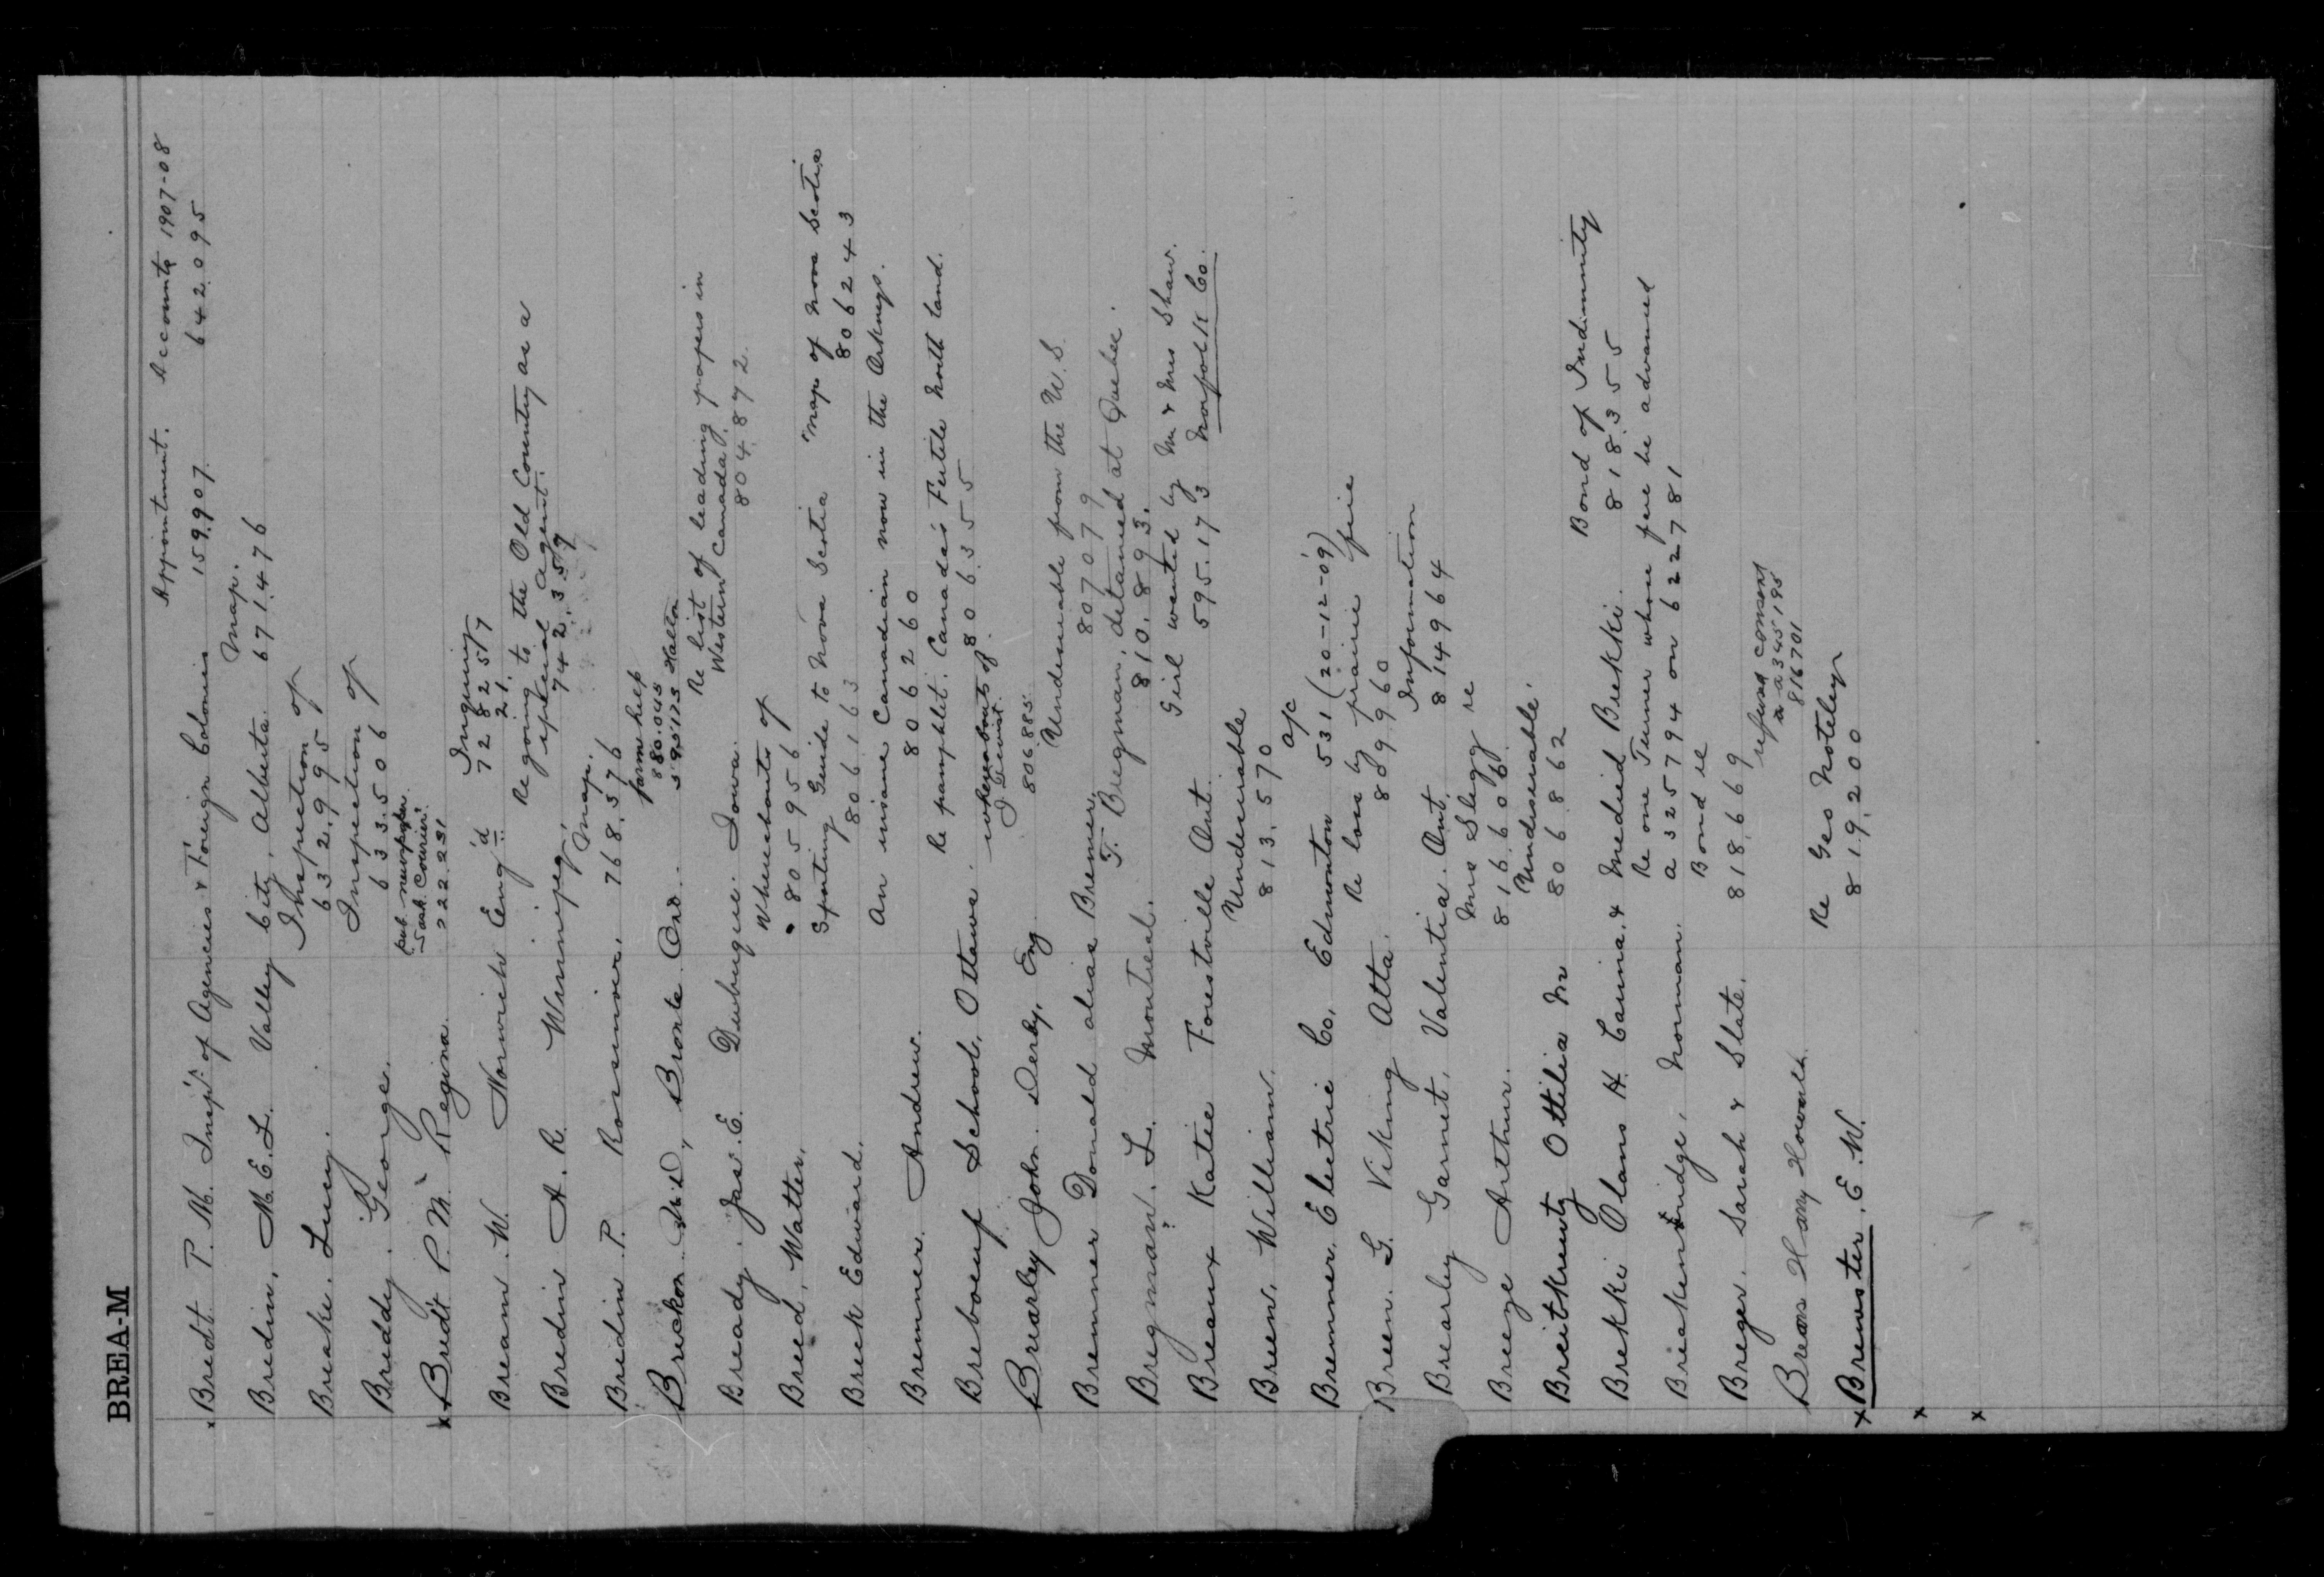 BREA-M
Appointment. Accounts 1907-08
x Bredt P. M. Insp. of Agencies & Foreign Colonies 159.907. 642.095
Map.
Bredin, M. E. L. Valley City, Alberta. 671476
Inspection of
Breake. Lucy. 632.995
Inspection of
Breddy. George. 633.506
pub. newspaper
Sask. Courier.
x Bredt P. M. Regina. 222.231
Inquiry
Bream. W. Norwich Eng'd 728257
21.
Re going to the Old Country as a
special agent.
Bredin A. R. Winnipeg, 742.359
Map.
Bredin P. Rossmior. 768.576
farm help
880.045
Brecken. M.D, Bronte. Ont. 595173 Halton
Re list of leading papers in
Western Canada.
Bready. Jas. E. Dubuque. Iowa. 804.872.
Whereabouts of
Breed, Walter. 805956
Sporting Guide to Nova Scotia "Map of Nova Scotia
Breck Edward. 806.163 806243
An insane Canadian now in the Orkneys.
Bremner. Andrew. 806260
Re pamphlet. Canada's Fertile North Land.
Breboeuf School, Ottawa. 806.355
whereabouts of
Brearley John. Derby, Eng. 806.885
Undesirable from the U.S.
Bremner Donald alias Bremer. 807079
F. Bregman, detained at Quebec.
Bregman. L. Montreal. 810.893.
Girl wanted by Mr & Mrs Shaw.
Breaux Katie Forestville Ont. 595.173 Norfolk Co.
Undesirable
Breen, William. 813.570
a/c
Bremner Electric Co, Edmonton 531 (20-12-09)
Re loss by prairie fire
Breen. G. Viking Alta. 809960
Information
Brearley Garnet, Valentia. Ont. 814964
Mrs Slegg re
Breeze Arthur. 816.606
Undesirable.
Breitkreutz Ottilia 806.862
Bond of Indemnity
Brekki Olans H. Carrina, & Medied Brekki. 818.355
Re one Turner whose fare be advanced
Breakenridge, Norman. a 325794 on 622781
Bond re
Breger. Sarah & Slate. 818.669
refused consent
a a 345195
816701
Brean Harry Howard.
Re Geo Noteley
x Brewster. E. W. 819.200
x
x